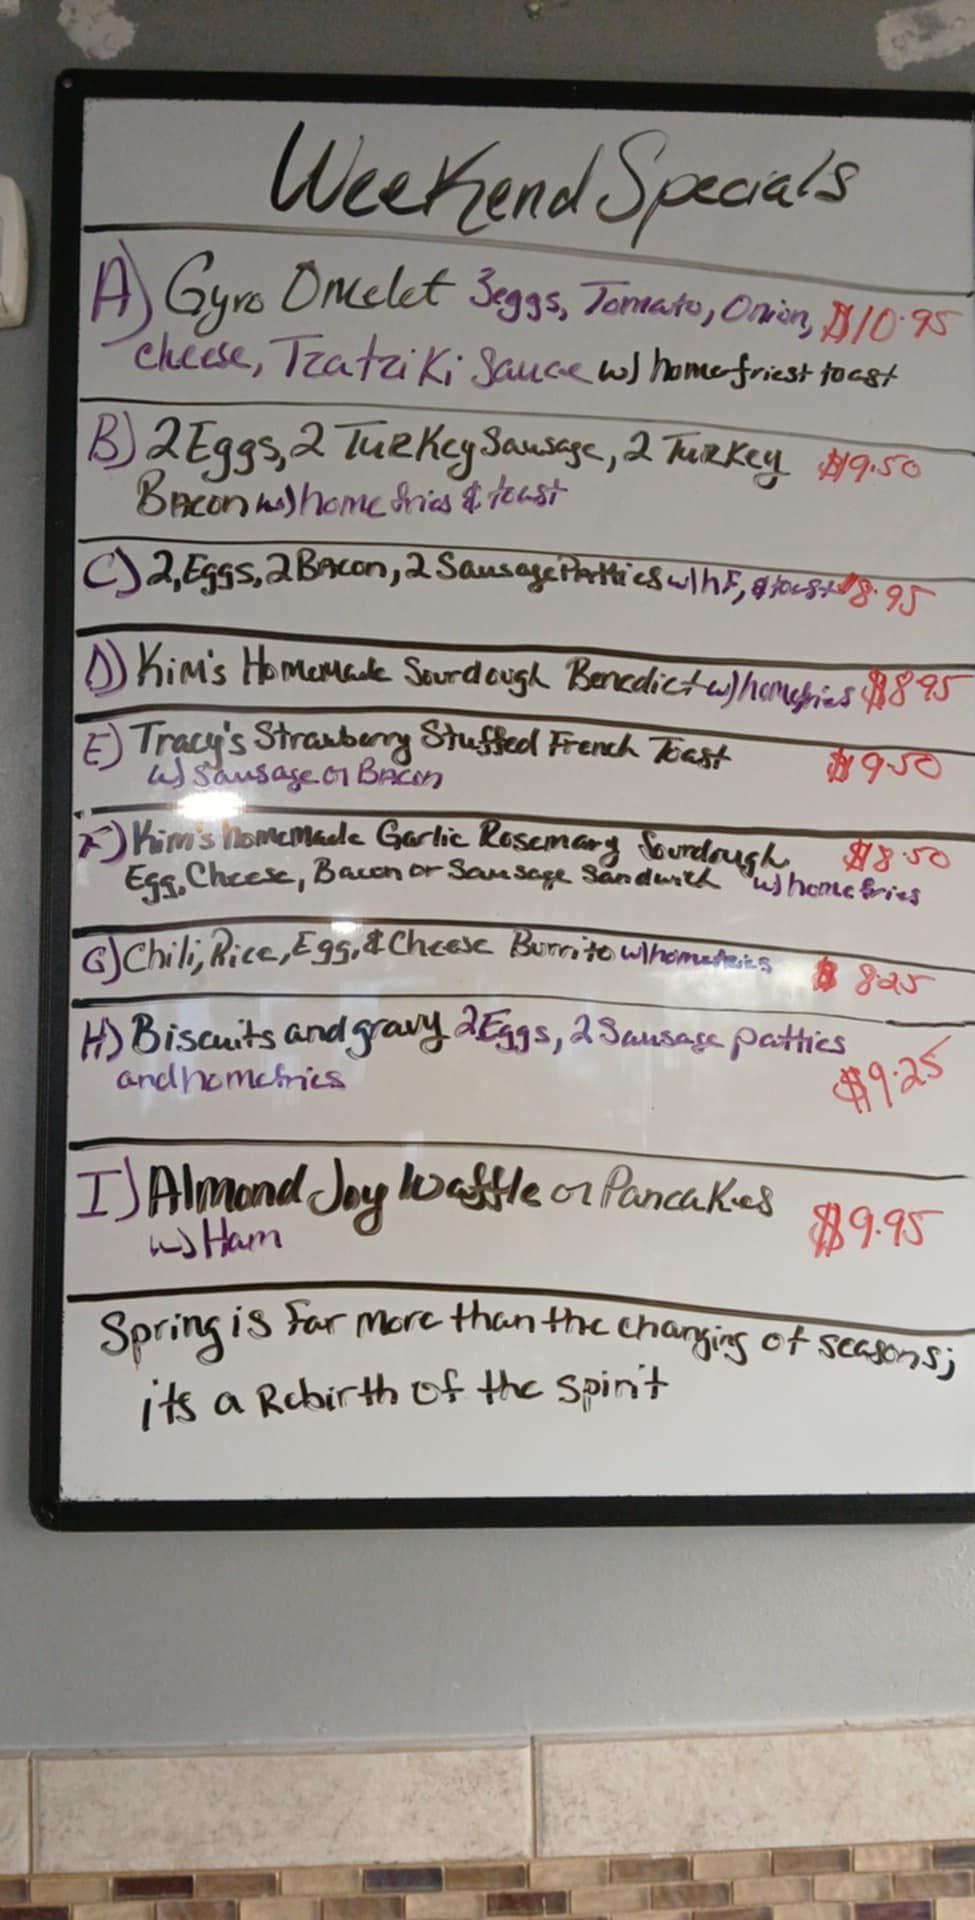 Weekend Specials
A) Gyro Omelet 3eggs, Tomato, Onion, $10.95
cheese, Tzatziki Sauce w/ homefries+ toast
B) 2 Eggs, 2 Turkey Sausage, 2 Turkey $9.50
Bacon w/ home fries & toast
C) 2, Eggs, 2 Bacon, 2 Sausage Patties w/ hF, & toast $8.95
D) Kim's Homemade Sourdough Benedict w/ homefries $8.95
E) Tracy's Strawberry Stuffed French Toast $9.50
w/ Sausage or Bacon
F) Kim's homemade Garlic Rosemary Sourdough $8.50
Egg, Cheese, Bacon or Sausage Sandwich w/ home fries
G) Chili, Rice, Egg, & Cheese Burrito w/ homefries $8.25
H) Biscuits and gravy 2 Eggs, 2 Sausage patties
and homefries $9.25
I) Almond Joy Waffle or Pancakes $9.95
w/ Ham
Spring is far more than the changing of seasons;
its a Rebirth of the spirit